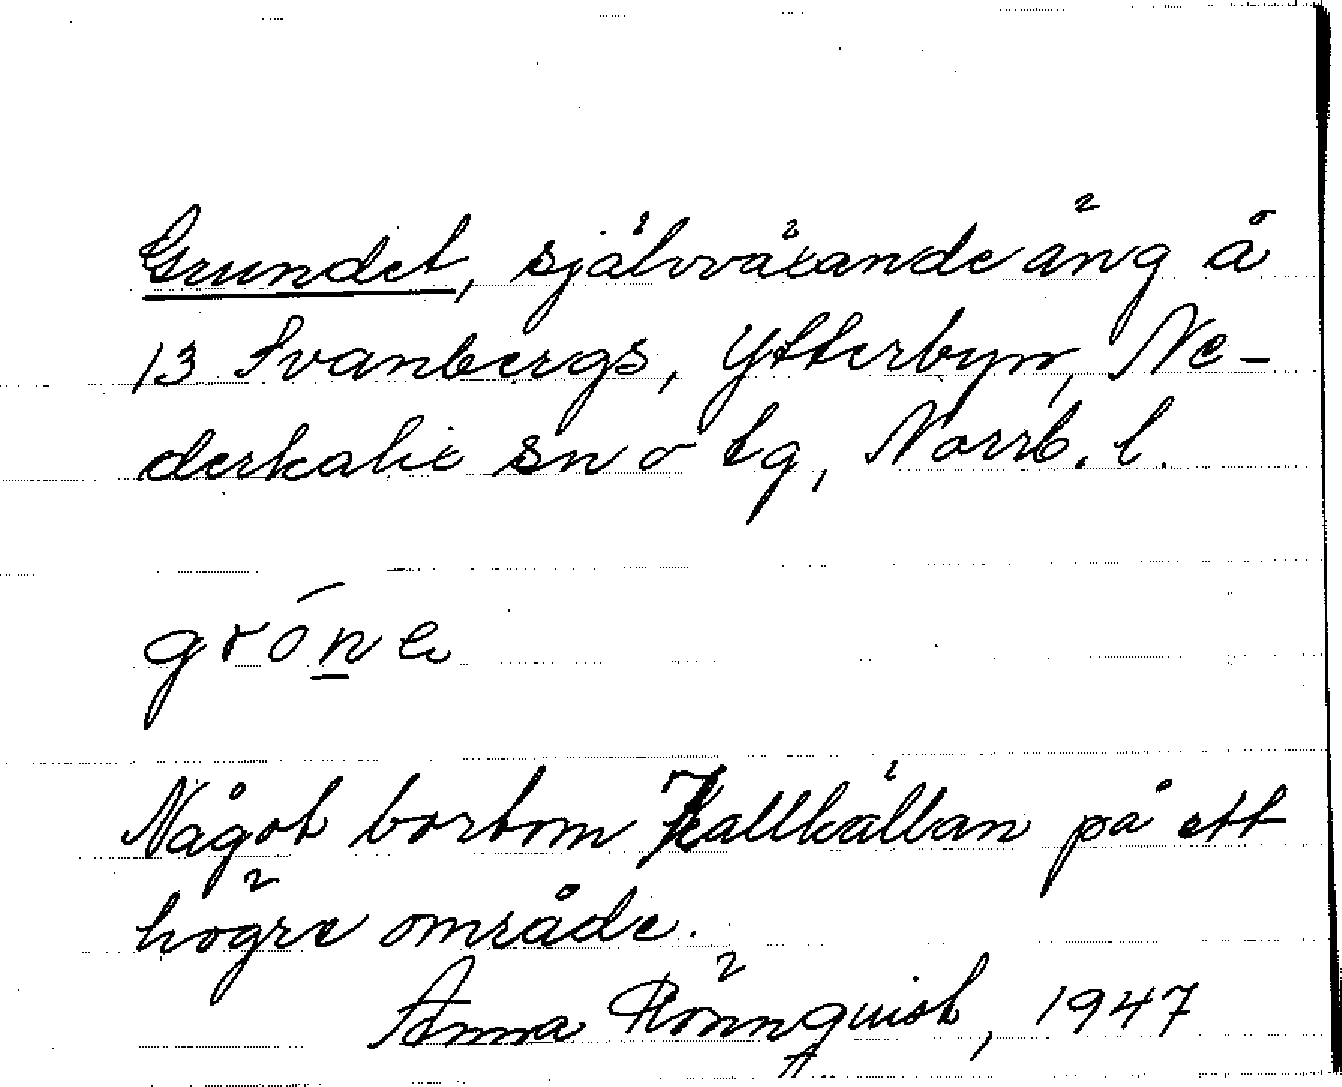 Grundet, självväxande äng å
13 Svanbergs, Ytterbyn, Ne-
derkalix sn o tg, Norrb. l.
gróne
Något bortom Kallkällan på ett
högre område.
Anna Rönnquist, 1947